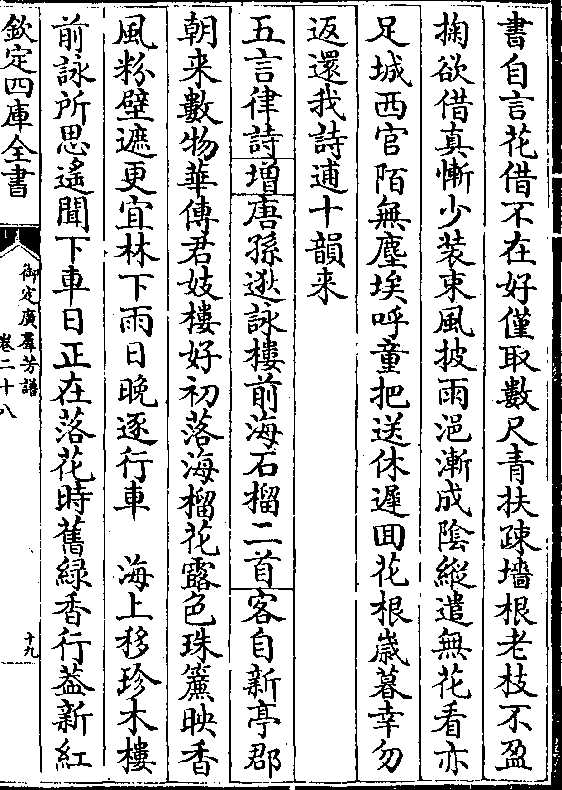 書自言花借不在好僅取數尺青扶疎墻根老枝不盈
掬欲借真慚少装束風披雨浥漸成陰縱遣無花看亦
足城西官陌無塵埃呼童把送休遲囬花根嵗暮幸勿
返還我詩逋十韻来
五言律詩增唐孫逖詠樓前海石榴二首客自新亭郡
朝来數物華傳君妓樓好初落海榴花露色珠簾映香
風粉壁遮更宜林下雨日晚逐行車　海上移珍木樓
前詠所思遙聞下車日正在落花時舊緑香行葢新紅
欽定四庫全書
御定廣羣芳譜
卷二十八
十九